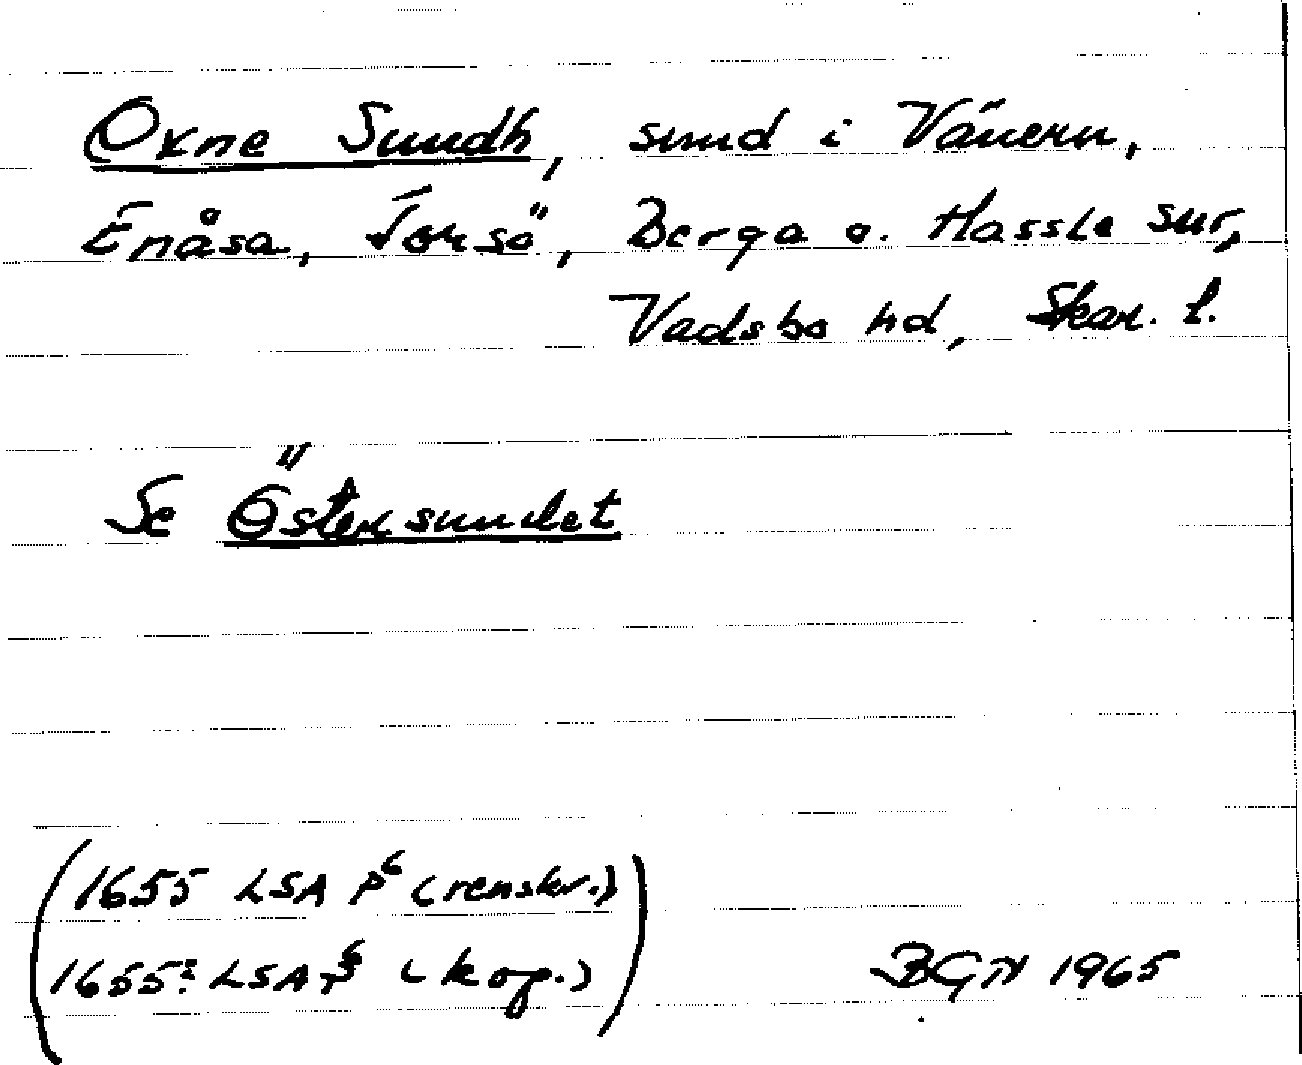 Oxne Sundh, sund i Vänern,
Enåsa, Torsö, Berga o. Hassle snr,
Vadsbo hd, Skar. l.
Se Östersundet
(1655 LSA P6 (renskr.)
1655? LSA P6 (kop.))
BGN 1965